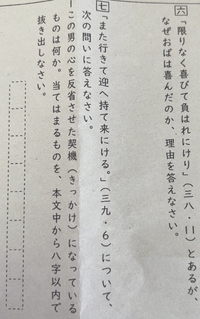 六 「限りなく喜びて負はれにけり」(三八・11)とあるが、
なぜおばは喜んだのか、理由を答えなさい。
七 「また行きて迎へ持て来にける。」(三九・6)について、
次の問いに答えなさい。
一 この男の心を反省させた契機(きっかけ)になっている
ものは何か。当てはまるものを、本文中から八字以内で
抜き出しなさい。